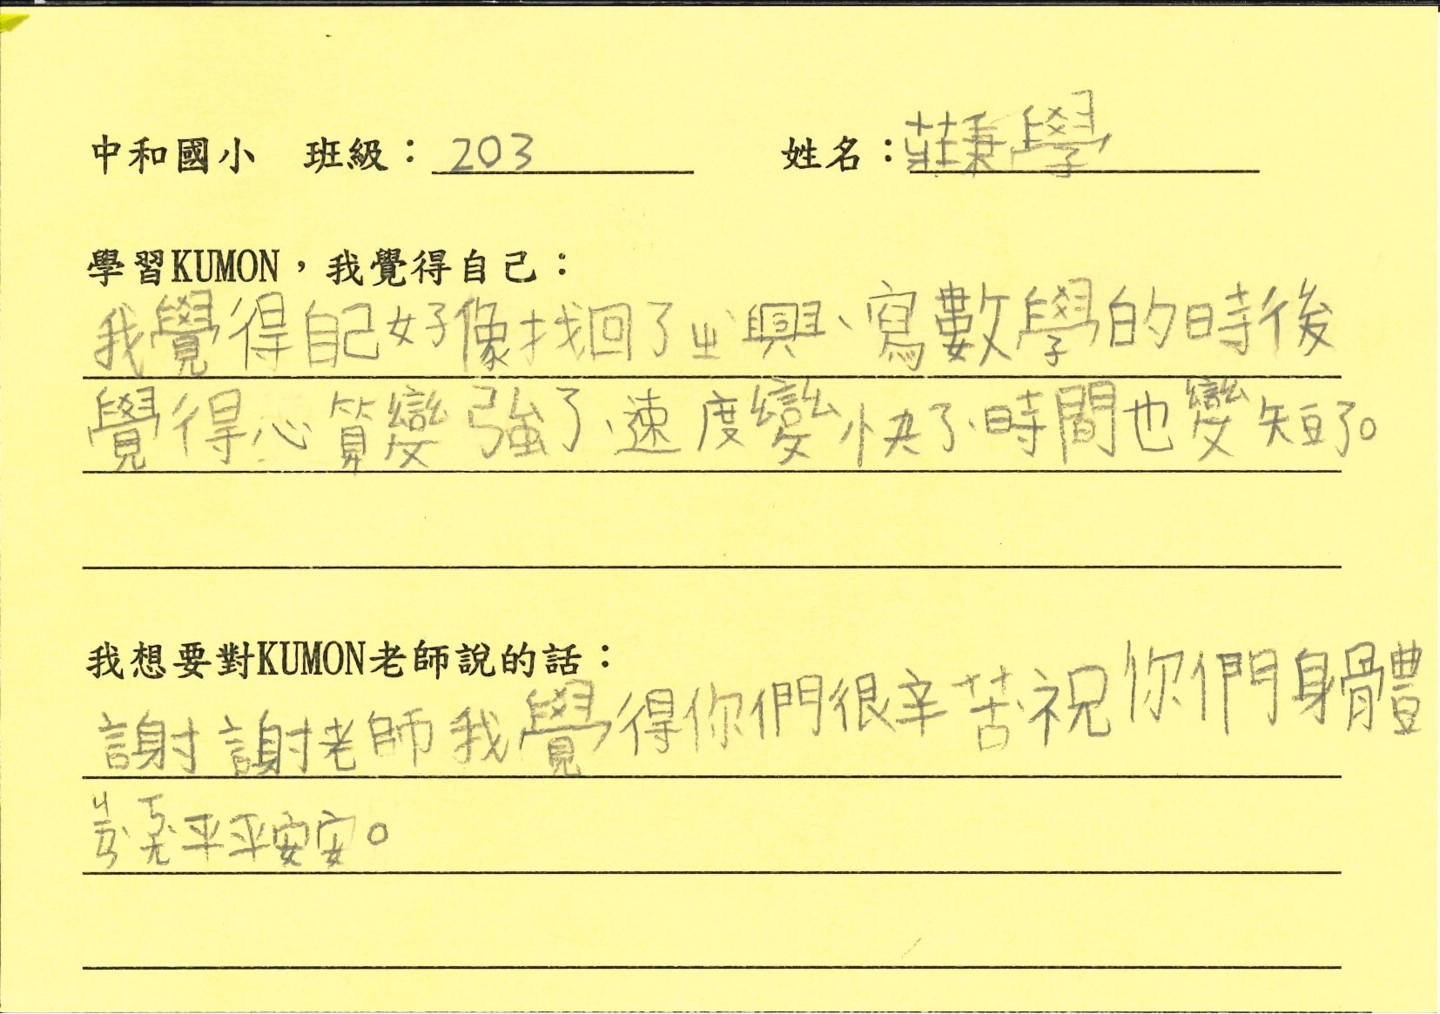 中和國小 班級：203 姓名：莊秉學
學習KUMON，我覺得自己：
我覺得自己好像找回了ㄓˋ興、寫數學的時後
覺得心算變強了、速度變快了、時間也變短了。
我想要對KUMON老師說的話：
謝謝老師我覺得你們很辛苦祝你們身體
ㄐㄧㄢˋㄎㄤ平平安安。